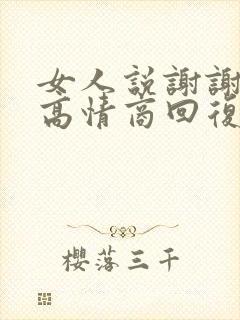 女人説謝謝
高情商回復
櫻落三千